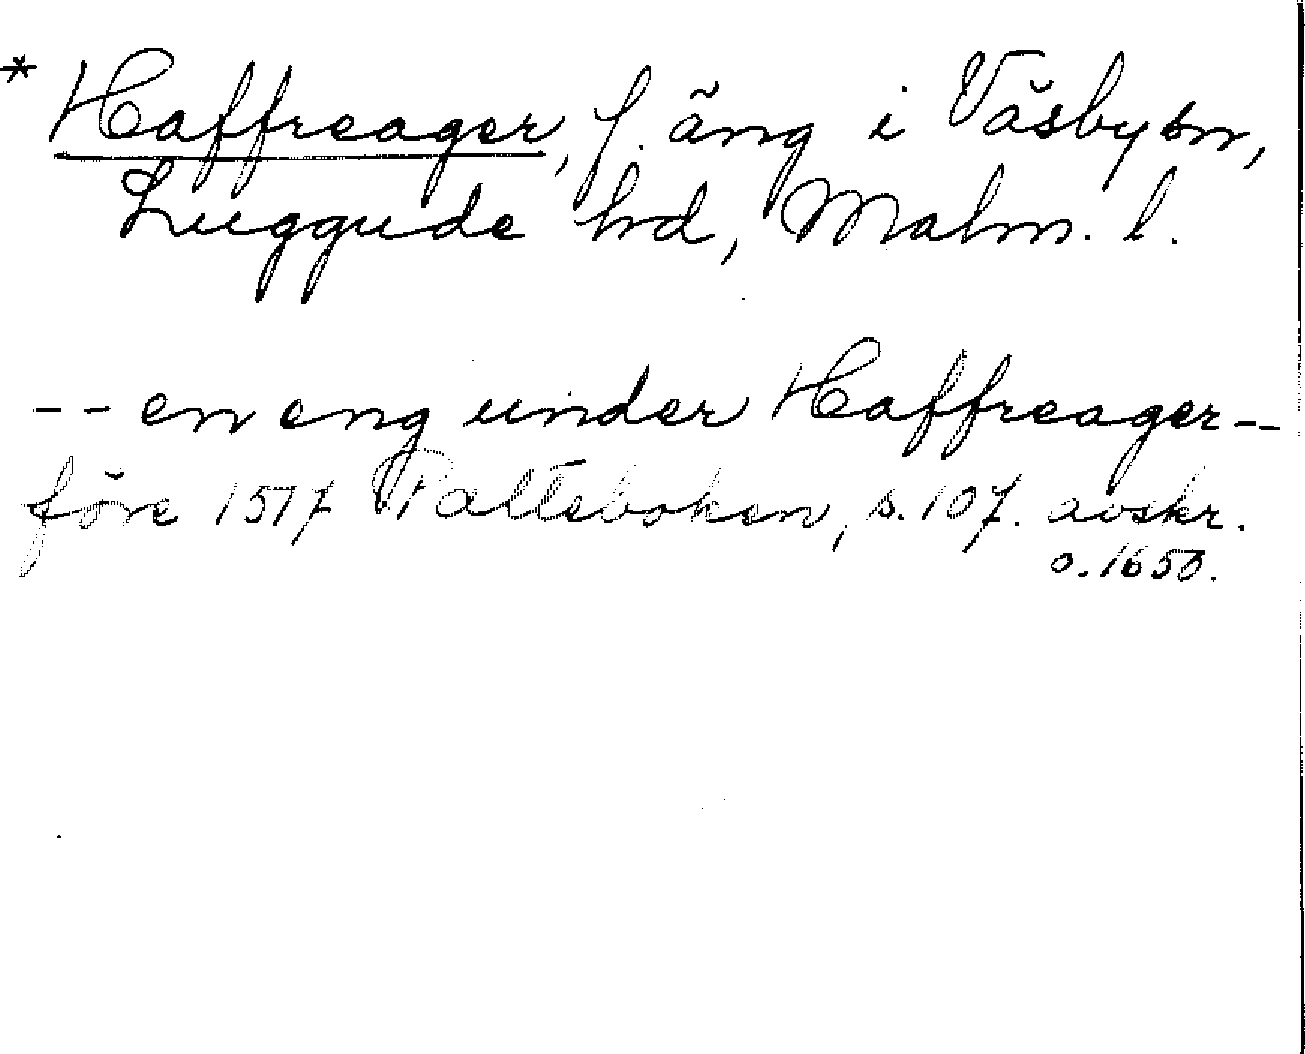 * Haffreager, f. äng i Väsby sn,
Luggude hd, Malm. l.
-- en eng under Haffreager --
före 1517 Palteboken, s. 107. avskr.
o. 1650.